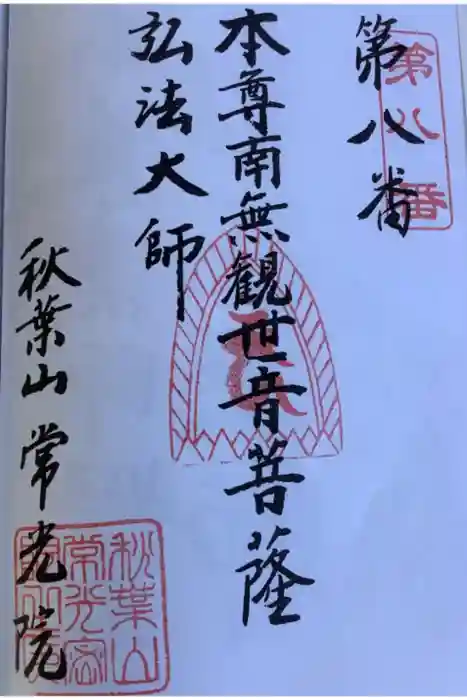 第八番
第八番
本尊南無観世音菩薩
弘法大師
秋葉山常光院